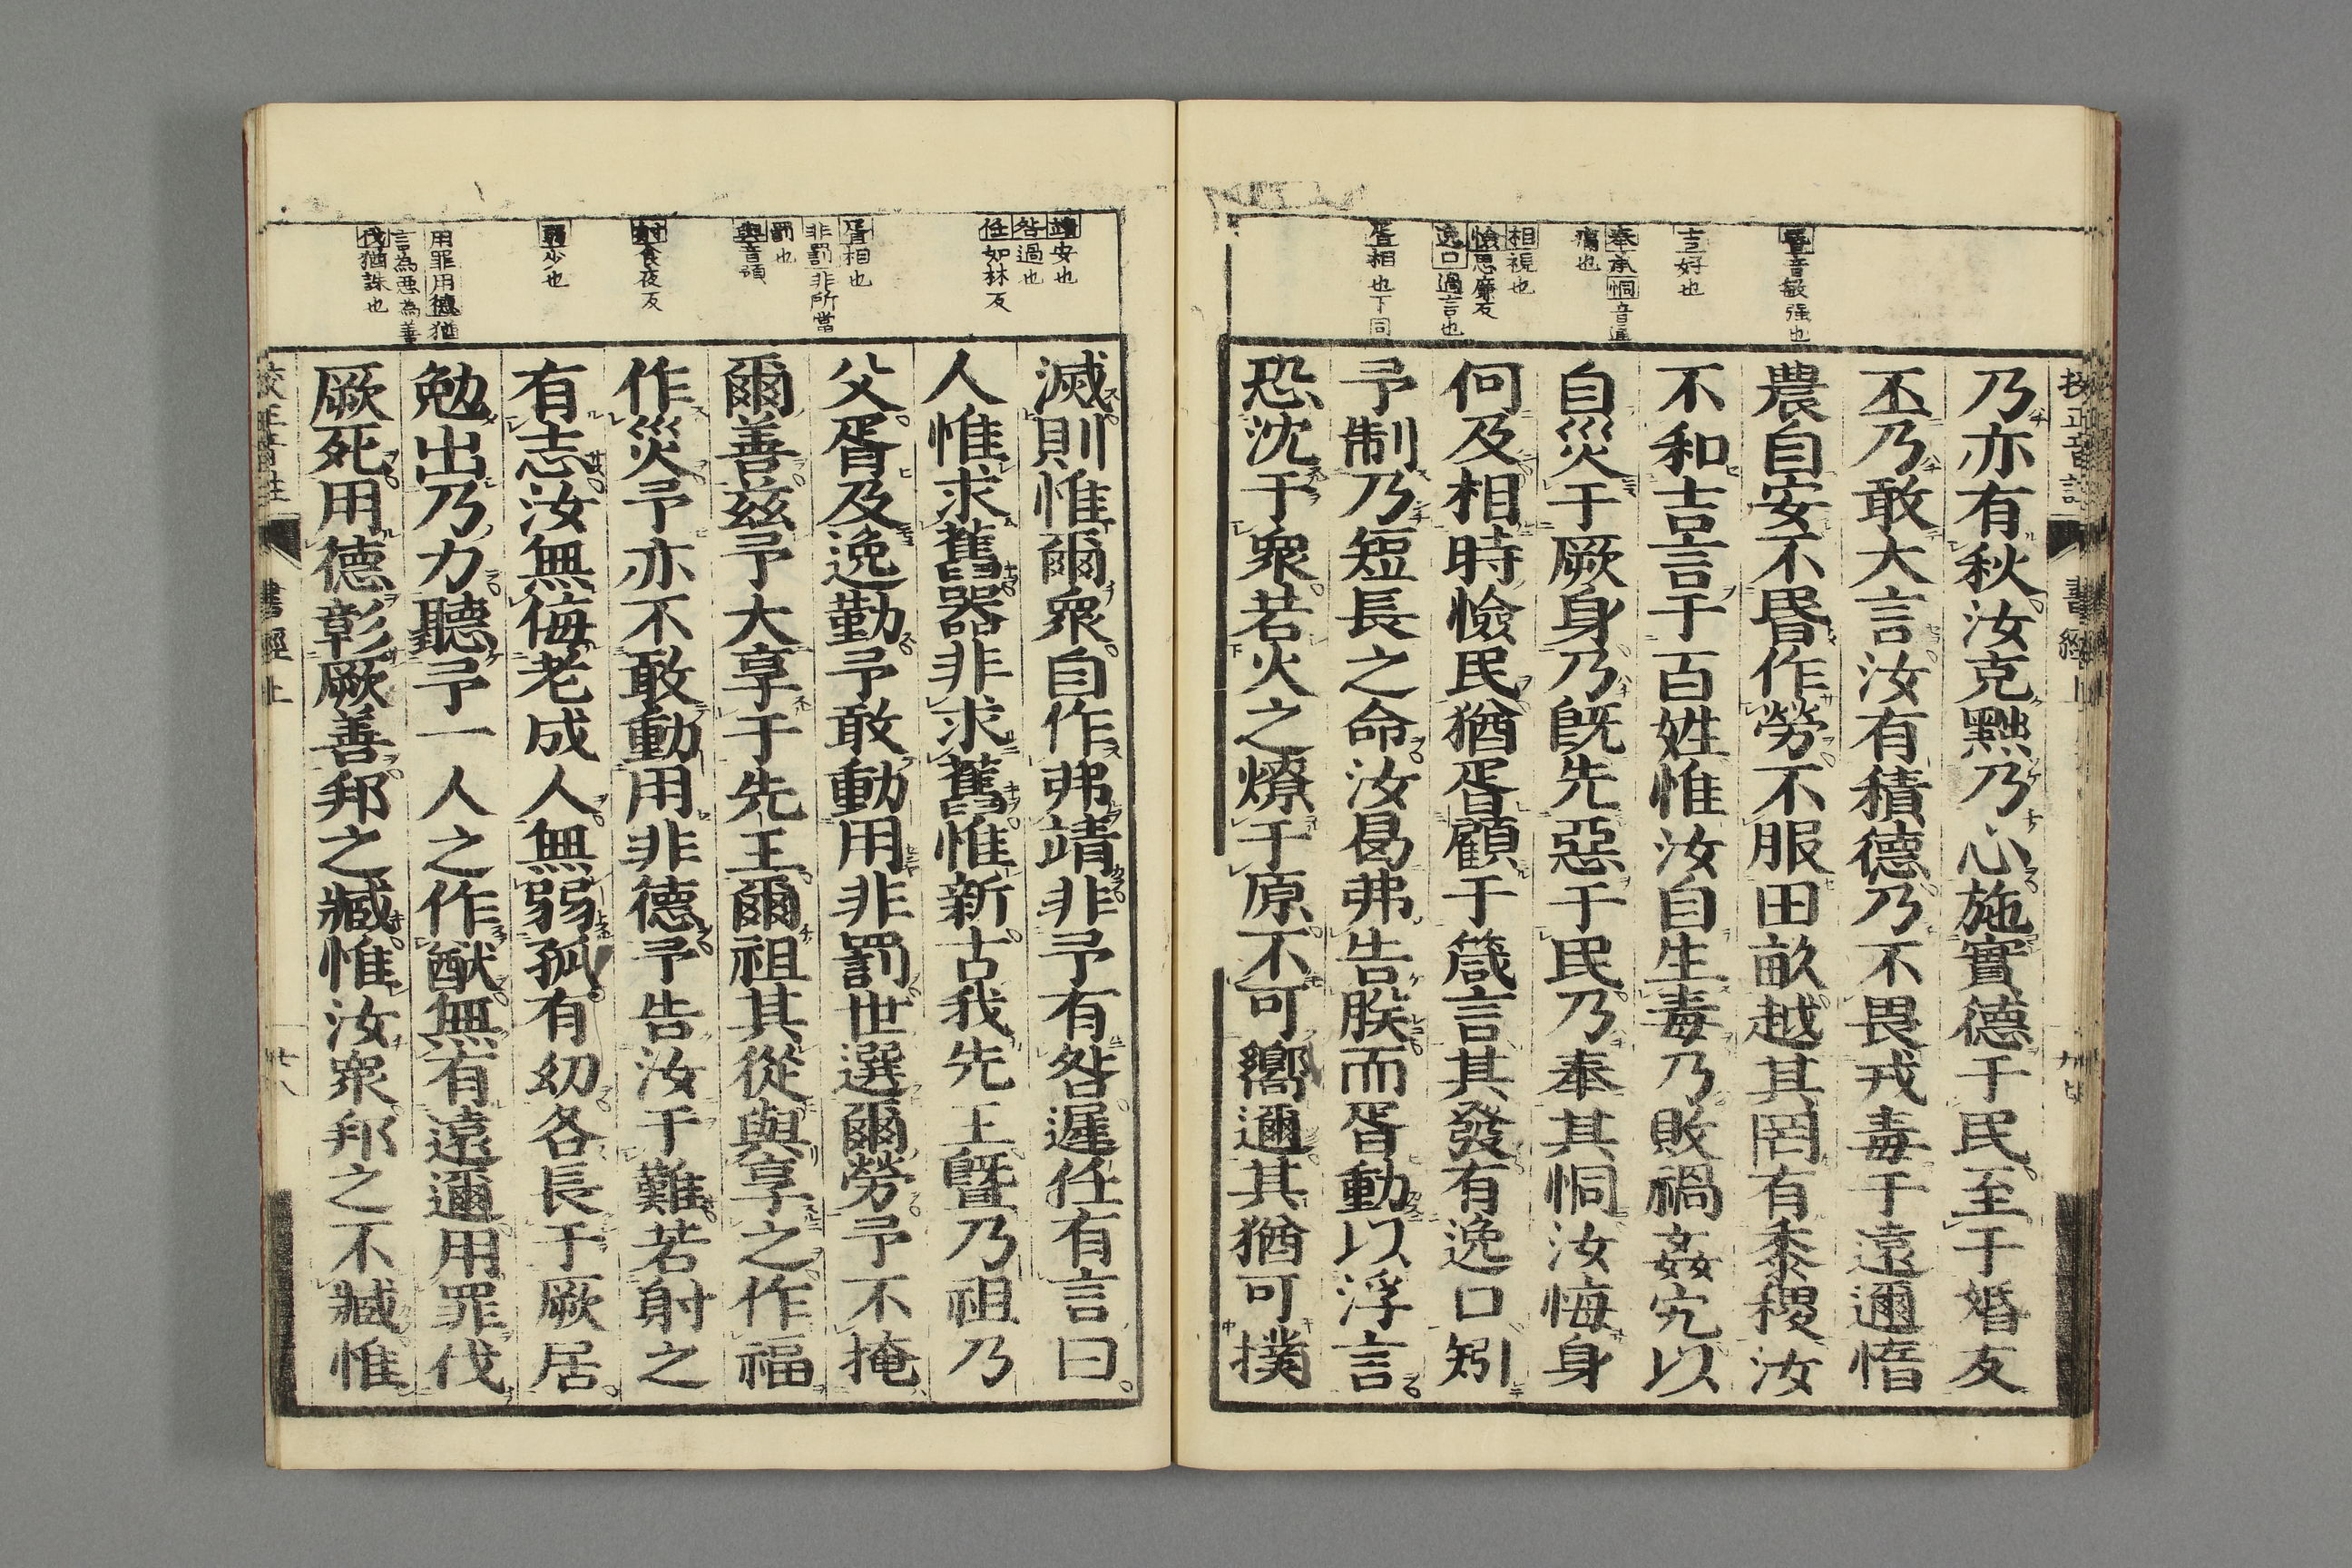 乃亦有秋汝克黜乃心施實德于民至于婚友
丕乃敢大言汝有積德乃不畏戎毒于遠邇惰
農自安不昬作勞不服田畝越其罔有黍稷汝
不和吉言于百姓惟汝自生毒乃敗禍姦宄以
自災于厥身乃既先惡于民乃奉其恫汝悔身
何及相時憸民猶胥顧于箴言其發有逸口矧
予制乃短長之命汝曷弗告朕而胥動以浮言
恐沈于衆若火之燎于原不可嚮邇其猶可撲
音敏强也
吉好也
奉承恫音通
痛也
相視也
憸思廉反
逸口過言也
胥相也下同
書經上
滅則惟爾衆自作弗靖非予有咎遲任有言曰
人惟求舊器非求舊惟新古我先王曁乃祖乃
父胥及逸勤予敢動用非罰世選爾勞予不掩
爾善茲予大享于先王爾祖其從與享之作福
作災予亦不敢動用非德予告汝于難若射之
有志汝無侮老成人無弱孤有幼各長于厥居
勉出乃力聽予一人之作猷無有遠邇用罪伐
厥死用德彰厥善邦之臧惟汝衆邦之不臧惟
靖安也
咎過也
任如林反
胥相也
非罰非所當
罰也
與音預
射食夜反
弱少也
用罪用德猶
言為惡為善
伐猶誅也
校正音註
書經上
廿八